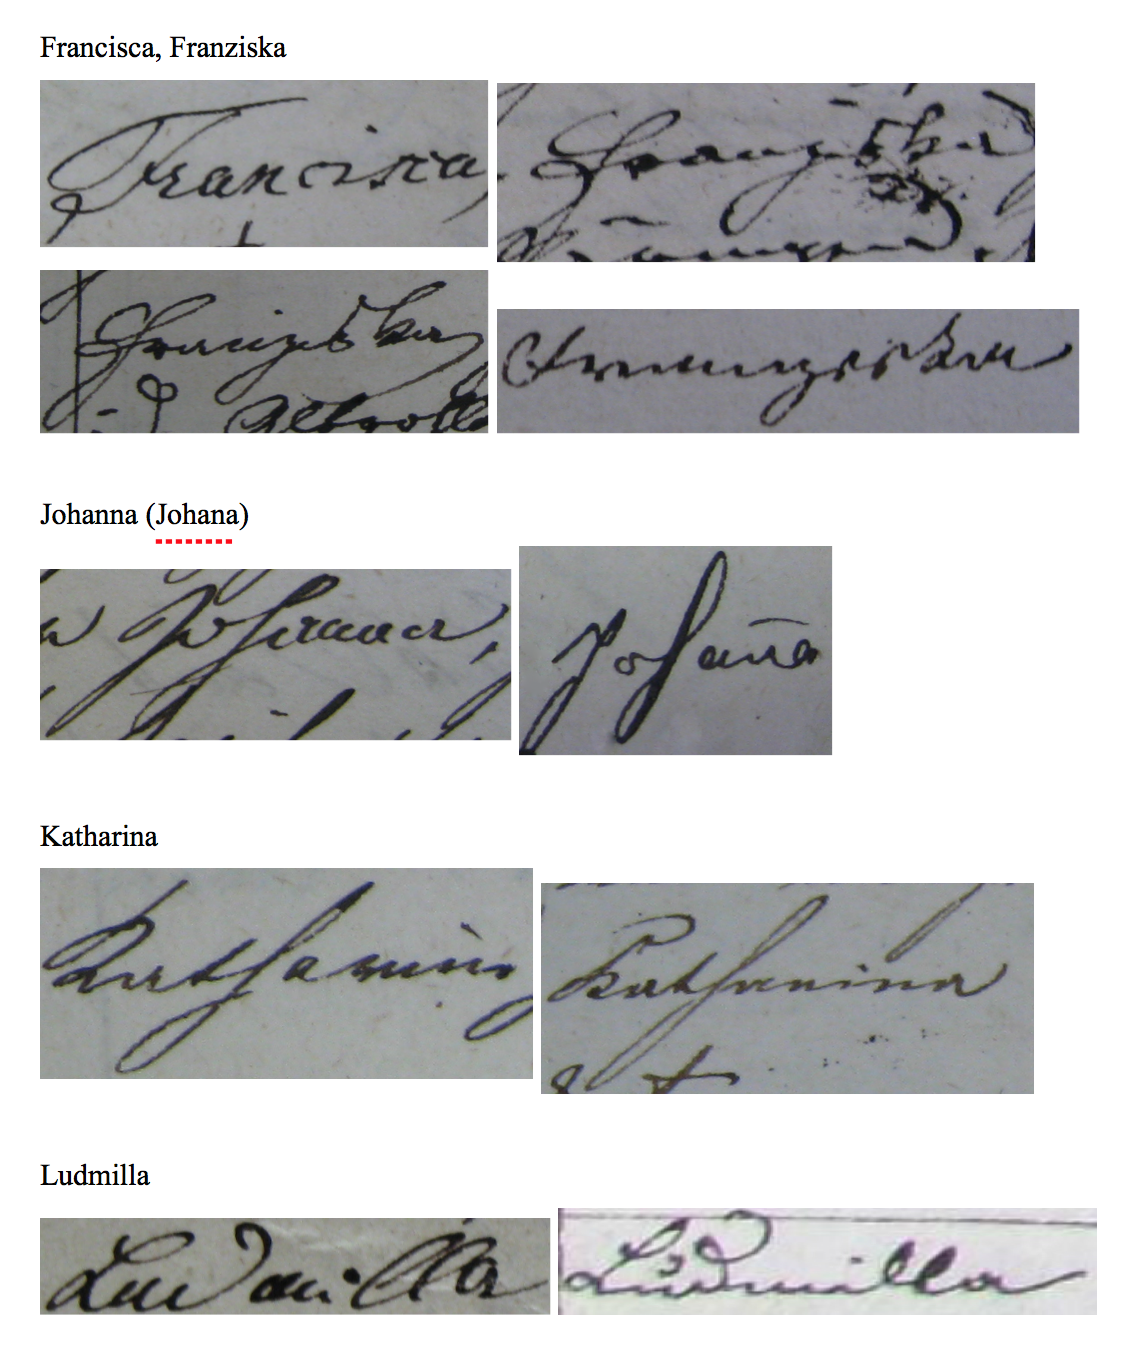 Francisca, Franziska
Francisca
Franziska
Franziska
Albrolt
Franziska
Johanna (Johana)
Johanna,
Johaña
Katharina
Katharina
Katharina
Ludmilla
Ludmilla
Ludmilla